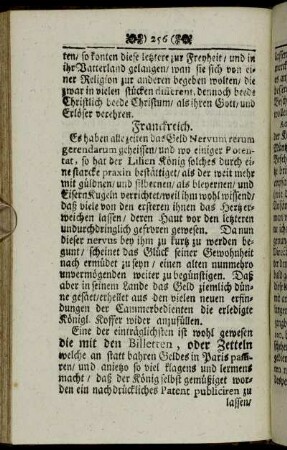 ) 256 (
ten/ so konten diese letztere zur Freyheit/ und in
ihr Vatterland gelangen/ wan sie sich von ei-
ner Religion zur anderen begeben wolten/ die
zwar in vielen stücken different, dennoch beede
Christlich beede Christum/ als ihren Gott/ und
Erlöser verehren.
Franckreich.
Es haben allezeiten das Geld Nervum rerum
gerendarum geheissen/ und wo einiger Poten-
tat, so hat der Lilien König solches durch ei-
ne starcke praxin bestättiget/ als der weit mehr
mit güldnen/ und silbernen/ als bleyernen/ und
Eisern Kugeln verrichtet/ weil ihm wohl wissend/
daß viele von den ersteren ihnen das Hertz er-
weichen lassen/ deren Haut vor den letzteren
undurchdringlich gefroren gewesen. Da nun
dieser nervus bey ihm zu kurtz zu werden be-
gunt/ scheinet das Glück seiner Gewohnheit
nach ermüdet zu seyn/ einen alten nunmehro
unvermögenden weiter zu begünstigen. Daß
aber in seinem Lande das Geld ziemlich dün-
ne gesäet/ erhellet aus den vielen neuen erfin-
dungen der Cammerbedienten die erledigte
Königl. Koffer wider anzufüllen.
Eine der einträglichsten ist wohl gewesen
die mit den Billetten, oder Zetteln
welche an statt bahren Geldes in Paris passi-
ren/ und anietzo so viel klagens und lermens
macht/ daß der König selbst gemüßiget wor-
den ein nachdrückliches Patent publiciren zu
lassen/